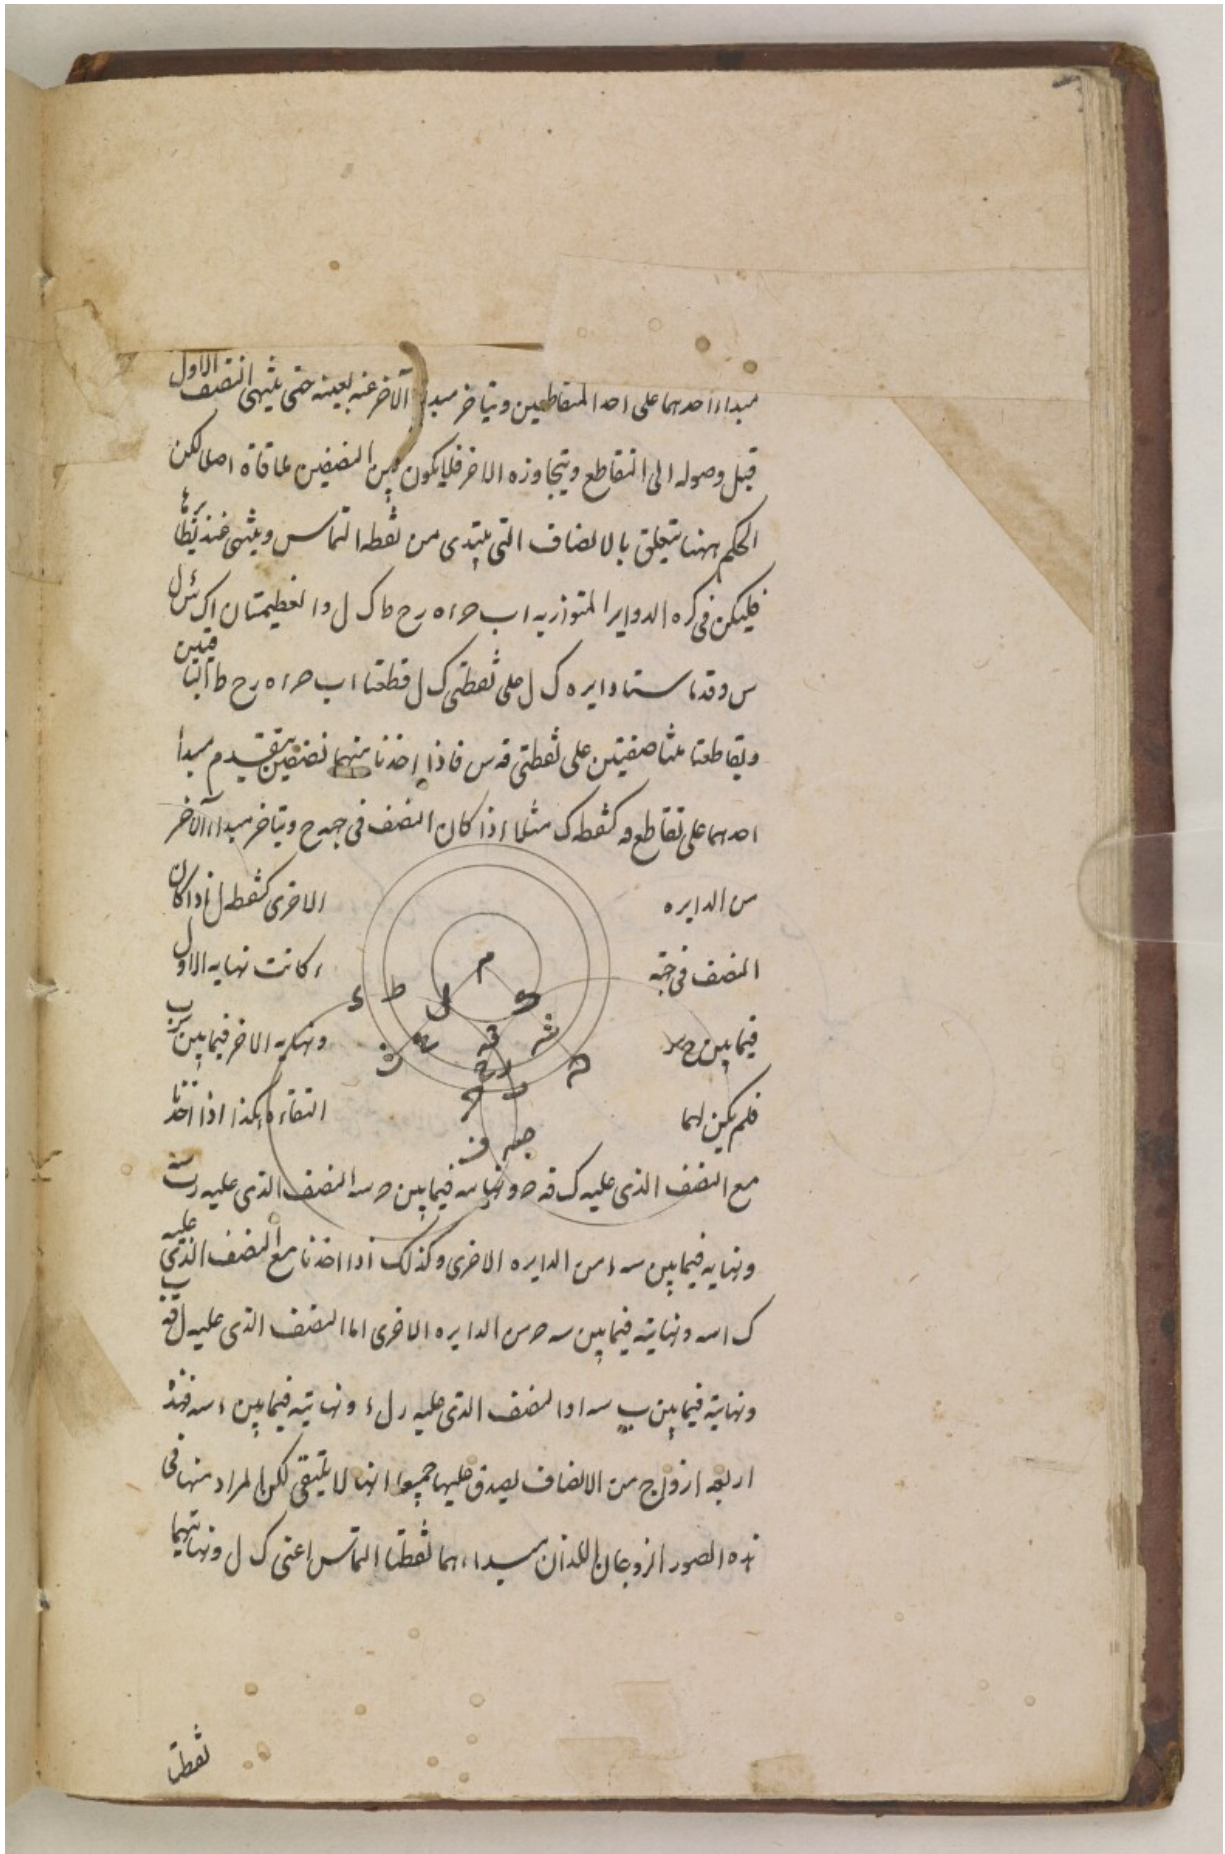 مبداء احدهما على احد المتقاطعين ويتاخر مبدأ الآخر عنه بعينه حتى ينتهى النصف الاول
قبل وصوله الى التقاطع ويتجاوزه الاخر فلا يكون بين النصفين ملاقاة اصلا لكن
الحكم ههنا يتعلق بالانصاف التى يبتدى من نقطه التماس وينتهى عند نظائرها
فليكن فى كره الدواير المتوازيه اب حء ه رح ط ك ل والعظيمتان اك
س وقد ماستا دايره ك ل على نقطتى ك ل قطعتا اب حء ه رح ط الباقيتين
وتقاطعتا متناصفتين على نقطتى قه س فاذا اخذنا منهما نصفين يتقدم مبدأ
احدهما على تقاطع قه كنقطه ك مثلا اذا كان النصف فى جهه ح ويتاخر مبداء الآخر
من الدايره الاخرى كنقطه ل اذا كان
النصف فى جهة ء كانت نهايه الاول
فيما بين ونهايه الاخر فيما بين
فلم يكن لهما التقاء وهكذا اذا اخذنا
م
ك
ل
ط
ء
قه
ه
رح
مع النصف الذى عليه ك قه ح ونهايته فيما بين ح سه النصف الذى عليه
ونهايه فيما بين سه ء من الدايره الاخرى وكذلك اذا اخذنا مع النصف الذى عليه
ك ا سه ونهايته فيما بين سه ح من الدايره الاخرى اما النصف الذى عليه ل قه ب
ونهايته فيما بين ب سه او النصف الذى عليه ر ل ء ونهايته فيما بين ء سه فهذه
اربعه ازواج من الانصاف يصدق عليها جميعا انها لا يلتقى لكن المراد منها فى
هذه الصور الزوجان اللذان مبداءهما نقطتا التماس اعنى ك ل ونهايتهما
نقطتا